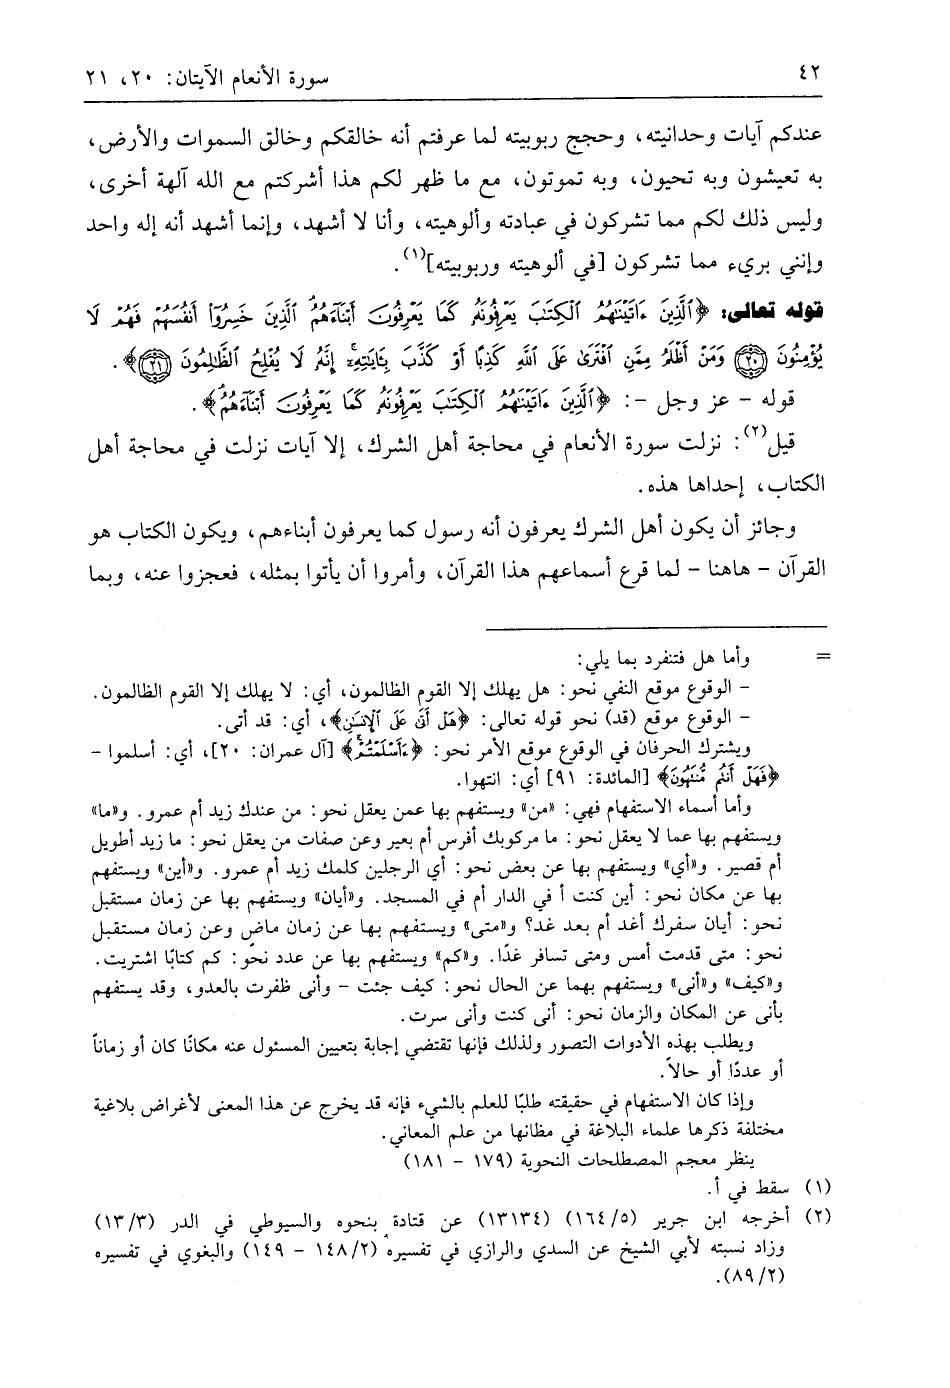 ٤٢
سورة الأنعام الآيتان: ٢٠، ٢١
عندكم آيات وحدانيته، وحجج ربوبيته لما عرفتم أنه خالقكم وخالق السموات والأرض،
به تعيشون وبه تحيون، وبه تموتون، مع ما ظهر لكم هذا أشركتم مع الله آلهة أخرى،
وليس ذلك لكم مما تشركون في عبادته وألوهيته، وأنا لا أشهد، وإنما أشهد أنه إله واحد
وإنني بريء مما تشركون [في ألوهيته وربوبيته](١).
قوله تعالى: ﴿ٱلَّذِينَ ءَاتَيۡنَٰهُمُ ٱلۡكِتَٰبَ يَعۡرِفُونَهُۥ كَمَا يَعۡرِفُونَ أَبۡنَآءَهُمُۘ ٱلَّذِينَ خَسِرُوٓاْ أَنفُسَهُمۡ فَهُمۡ لَا
يُؤۡمِنُونَ ٢٠ وَمَنۡ أَظۡلَمُ مِمَّنِ ٱفۡتَرَىٰ عَلَى ٱللَّهِ كَذِبًا أَوۡ كَذَّبَ بِـَٔايَٰتِهِۦٓۚ إِنَّهُۥ لَا يُفۡلِحُ ٱلظَّٰلِمُونَ ٢١﴾.
قوله - عز وجل -: ﴿ٱلَّذِينَ ءَاتَيۡنَٰهُمُ ٱلۡكِتَٰبَ يَعۡرِفُونَهُۥ كَمَا يَعۡرِفُونَ أَبۡنَآءَهُمُۘ﴾.
قيل(٢): نزلت سورة الأنعام في محاجة أهل الشرك، إلا آيات نزلت في محاجة أهل
الكتاب، إحداها هذه.
وجائز أن يكون أهل الشرك يعرفون أنه رسول كما يعرفون أبناءهم، ويكون الكتاب هو
القرآن - هاهنا - لما قرع أسماعهم هذا القرآن، وأمروا أن يأتوا بمثله، فعجزوا عنه، وبما
= وأما هل فتنفرد بما يلي:
- الوقوع موقع النفي نحو: هل يهلك إلا القوم الظالمون، أي: لا يهلك إلا القوم الظالمون.
- الوقوع موقع (قد) نحو قوله تعالى: ﴿هَلۡ أَتَىٰ عَلَى ٱلۡإِنسَٰنِ﴾، أي: قد أتى.
ويشترك الحرفان في الوقوع موقع الأمر نحو: ﴿ءَأَسۡلَمۡتُمۡۚ﴾ [آل عمران: ٢٠]، أي: أسلموا -
﴿فَهَلۡ أَنتُم مُّنتَهُونَ﴾ [المائدة: ٩١] أي: انتهوا.
وأما أسماء الاستفهام فهي: «من» ويستفهم بها عمن يعقل نحو: من عندك زيد أم عمرو. و«ما»
ويستفهم بها عما لا يعقل نحو: ما مركوبك أفرس أم بعير وعن صفات من يعقل نحو: ما زيد أطويل
أم قصير. و«أي» ويستفهم بها عن بعض نحو: أي الرجلين كلمك زيد أم عمرو. و«أين» ويستفهم
بها عن مكان نحو: أين كنت أ في الدار أم في المسجد. و«أيان» ويستفهم بها عن زمان مستقبل
نحو: أيان سفرك أغد أم بعد غد؟ و«متى» ويستفهم بها عن زمان ماض وعن زمان مستقبل
نحو: متى قدمت أمس ومتى تسافر غدًا. و«كم» ويستفهم بها عن عدد نحو: كم كتابًا اشتريت.
و«كيف» و«أنى» ويستفهم بهما عن الحال نحو: كيف جئت - وأنى ظفرت بالعدو، وقد يستفهم
بأنى عن المكان والزمان نحو: أنى كنت وأنى سرت.
ويطلب بهذه الأدوات التصور ولذلك فإنها تقتضي إجابة بتعيين المسئول عنه مكانًا كان أو زماناً
أو عددًا أو حالاً.
وإذا كان الاستفهام في حقيقته طلبًا للعلم بالشيء فإنه قد يخرج عن هذا المعنى لأغراض بلاغية
مختلفة ذكرها علماء البلاغة في مظانها من علم المعاني.
ينظر معجم المصطلحات النحوية (١٧٩ - ١٨١)
(١) سقط في أ.
(٢) أخرجه ابن جرير (٥/ ١٦٤) (١٣١٣٤) عن قتادة بنحوه والسيوطي في الدر (٣/ ١٣)
وزاد نسبته لأبي الشيخ عن السدي والرازي في تفسيره (٢/ ١٤٨ - ١٤٩) والبغوي في تفسيره
(٢/ ٨٩).